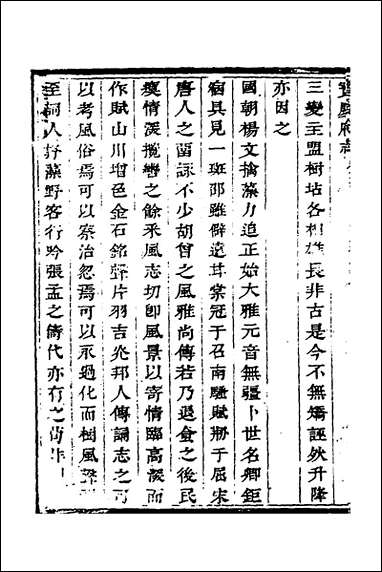 寶慶府志
三變至盟樹坫各相雄長非古是今不無矯誣然升降
亦因之
國朝楊文摛藻力追正始大雅元音無疆卜世名卿鉅
宿具見一斑邵雖僻遠甘棠冠于召南騷賦擬于屈宋
唐人之留詠不少胡曾之風雅尚傳若乃退食之後民
瘼情深攬轡之餘采風志切即風景以寄情臨高深而
作賦山川增色金石銘聲片羽吉光邦人傳誦志之可
以考風俗焉可以察治忽焉可以永過化而樹風聲
至詞人抒藻野客行吟張孟之儔代亦有之苟非